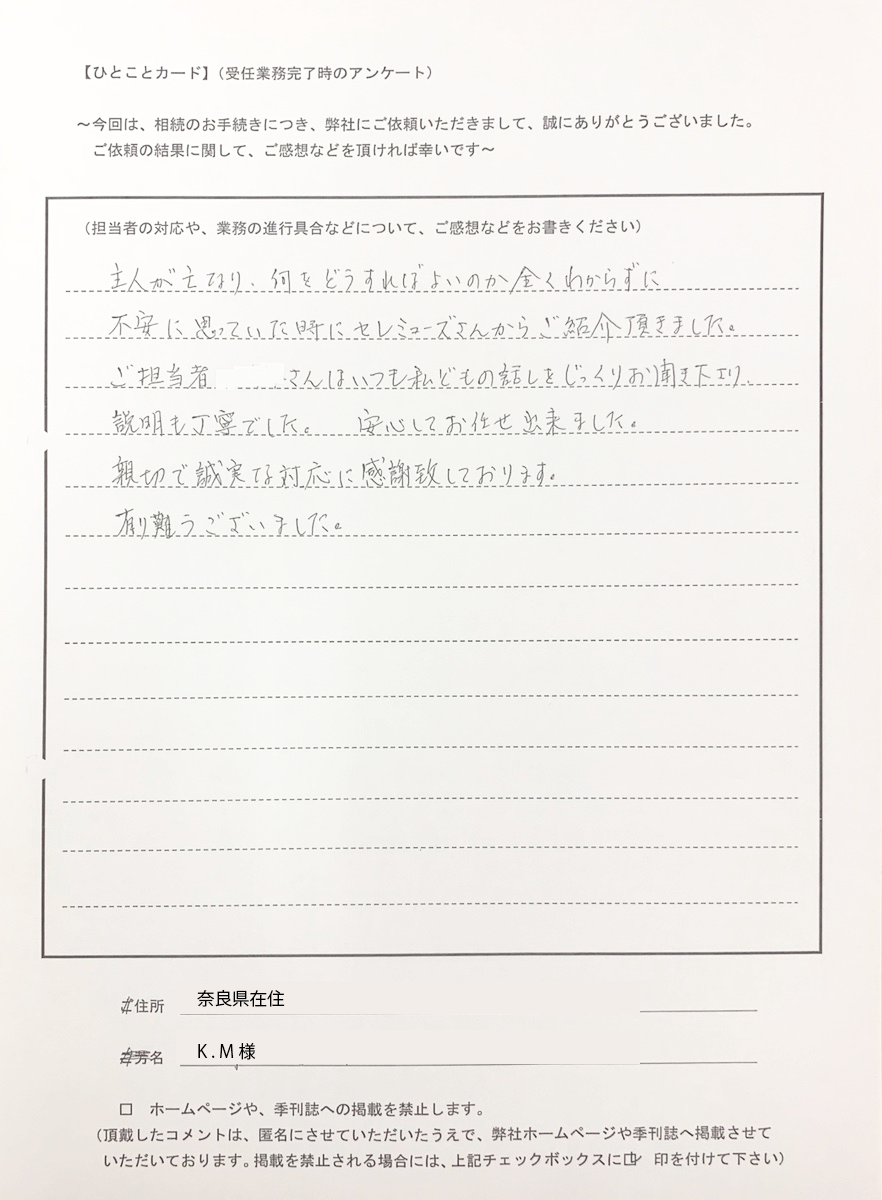 【ひとことカード】（受任業務完了時のアンケート）
～今回は、相続のお手続きにつき、弊社にご依頼いただきまして、誠にありがとうございました。
ご依頼の結果に関して、ご感想などを頂ければ幸いです～
（担当者の対応や、業務の進行具合などについて、ご感想などをお書きください）
主人が亡なり、何をどうすればよいのか全くわからずに
不安に思っていた時にセレミューズさんからご紹介頂きました。
ご担当者 さんはいつも私どもの話しをじっくりお聞き下さり、
説明も丁寧でした。 安心してお任せ出来ました。
親切で誠実な対応に感謝致しております。
有難うございました。
住所 奈良県在住
名 K.M様
□ ホームページや、季刊誌への掲載を禁止します。
（頂戴したコメントは、匿名にさせていただいたうえで、弊社ホームページや季刊誌へ掲載させて
いただいております。掲載を禁止される場合には、上記チェックボックスに☑ 印を付けて下さい）